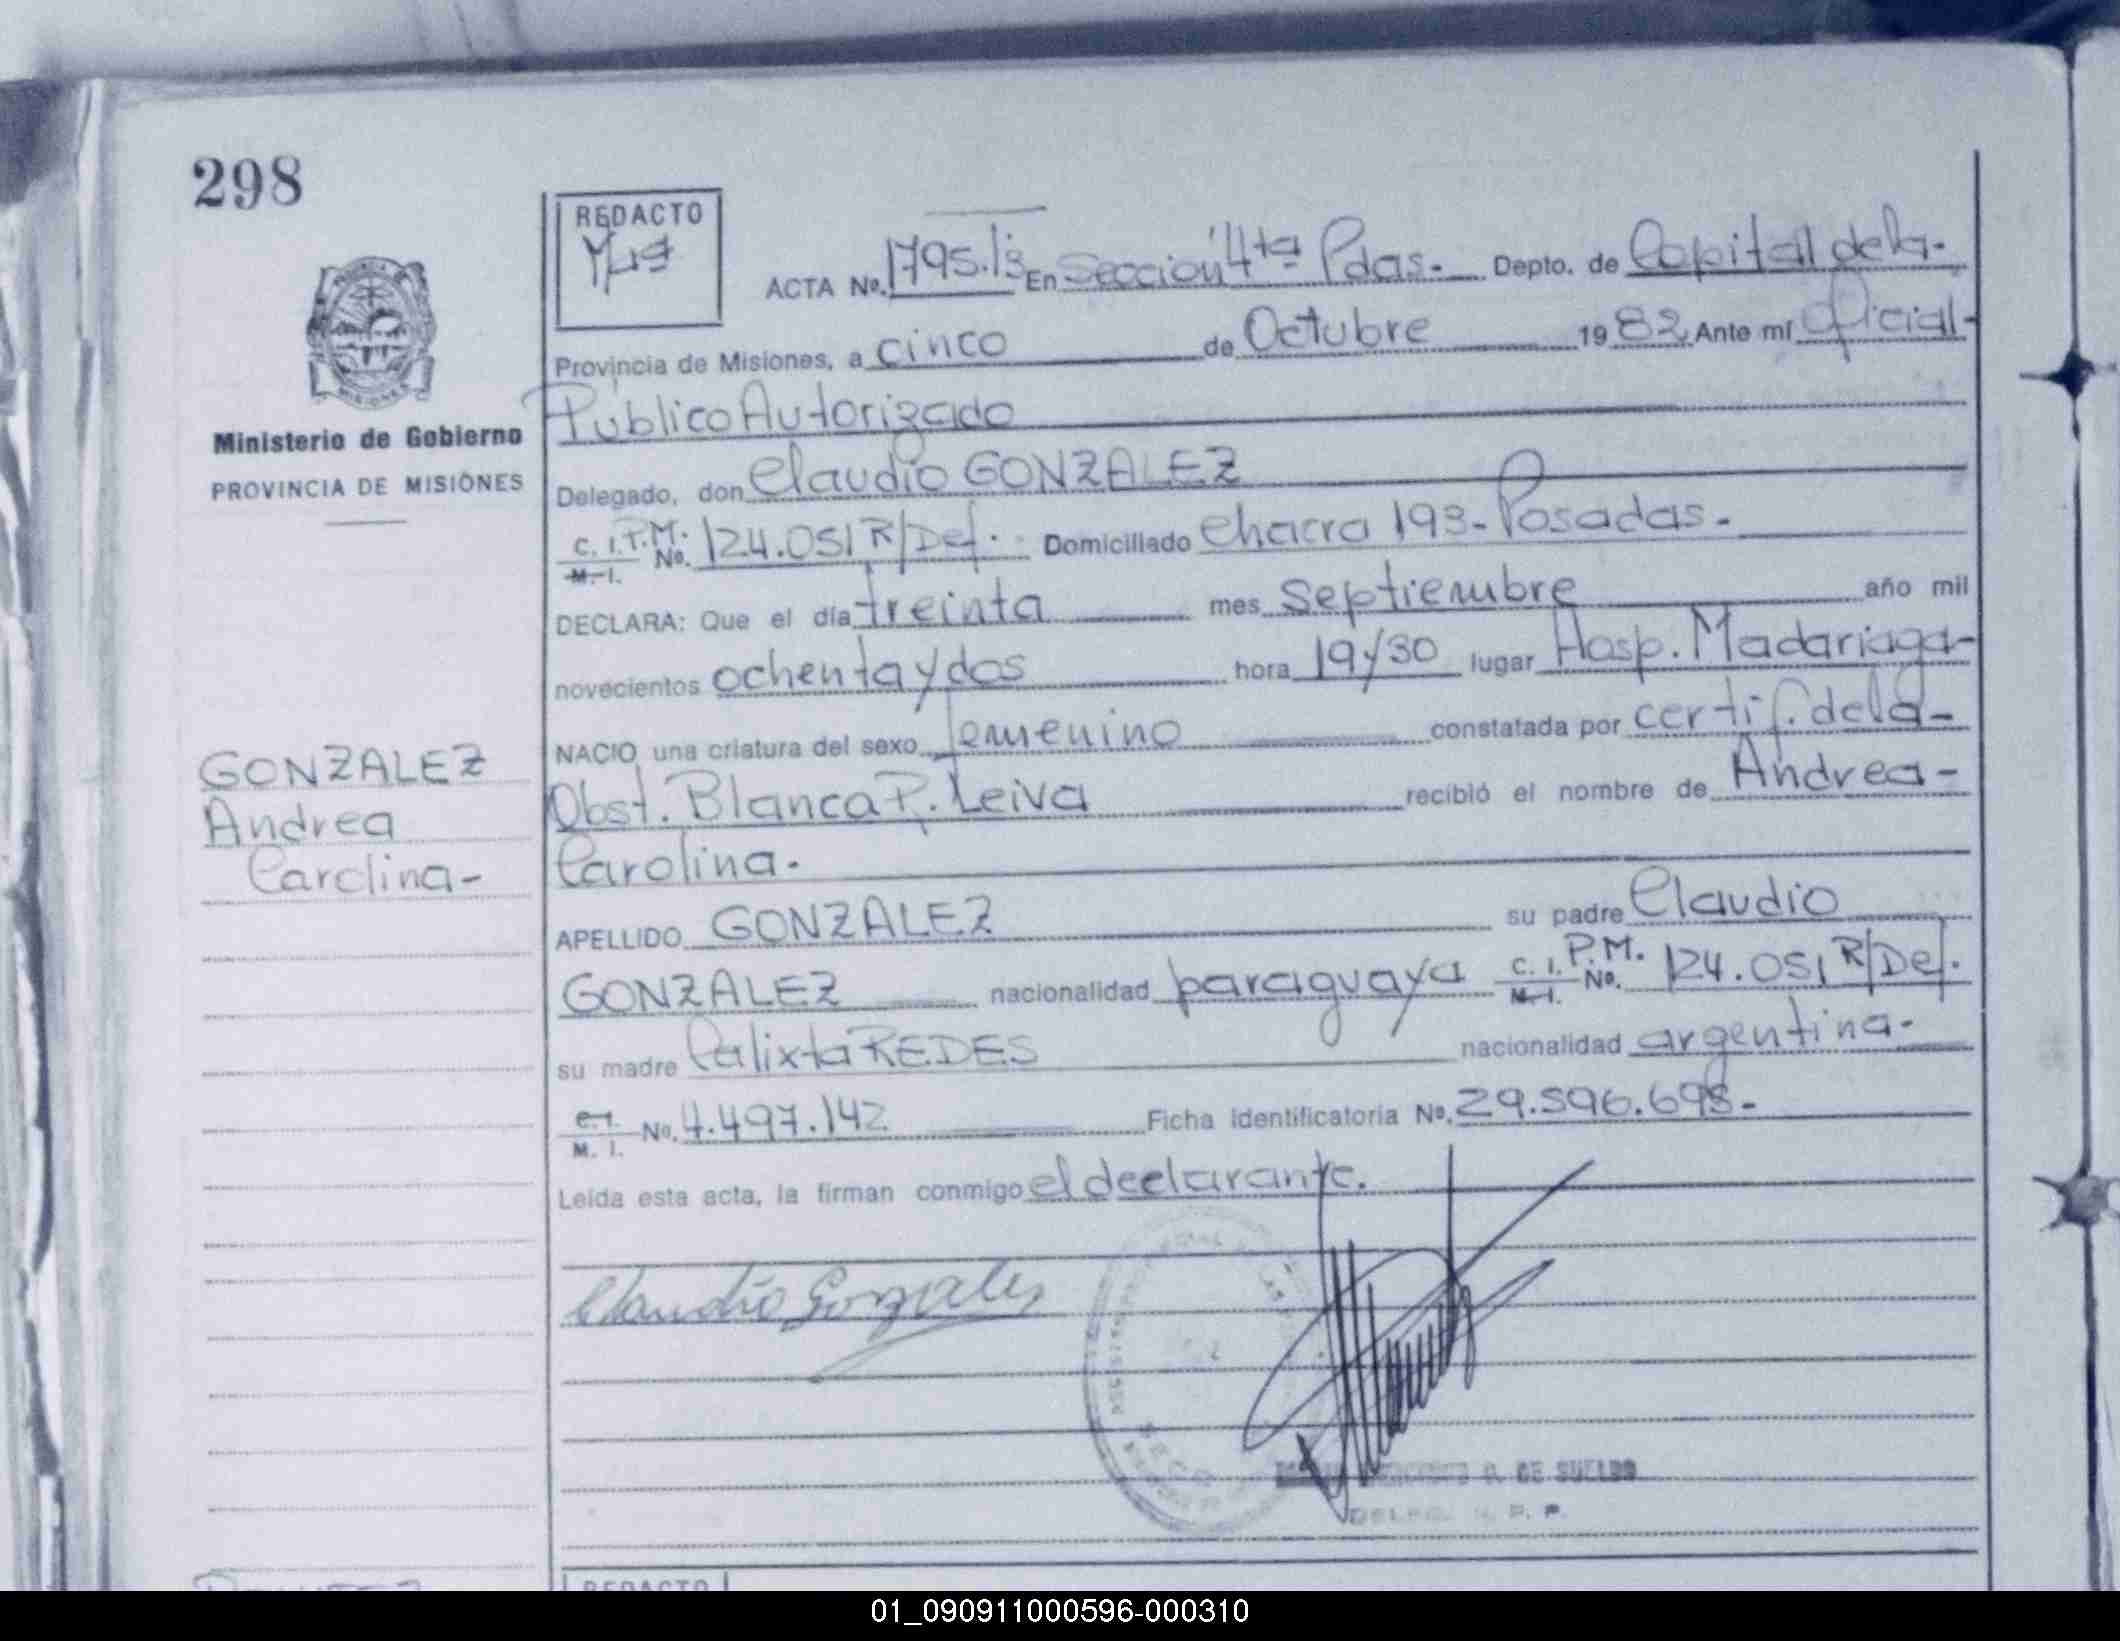 298
REDACTO
ACTA No. 1795.13 En Sección 4ta Pdas.- Depto. de Capital de la-
Provincia de Misiones, a cinco de Octubre 1982 Ante mí Oficial-
Público Autorizado
Ministerio de Gobierno
PROVINCIA DE MISIONES
Delegado, don Claudio GONZALEZ
C. I. P.M. No. 124.051 R/Def. Domiciliado Chacra 193- Posadas.-
M. I.
DECLARA: Que el día treinta mes septiembre año mil
novecientos ochenta y dos hora 19y30 lugar Hosp. Madariaga-
NACIO una criatura del sexo femenino constatada por certif. de la-
GONZALEZ
Andrea
Carolina-
Obst. Blanca R. Leiva recibió el nombre de Andrea-
Carolina.
APELLIDO GONZALEZ su padre Claudio
GONZALEZ nacionalidad paraguaya C. I. P.M. No. 124.051 R/Def.
M. I.
su madre Calixta REDES nacionalidad argentina.-
C. I. No. 4.497.142 Ficha Identificatoria No. 29.596.698.-
M. I.
Leída esta acta, la firman conmigo el declarante.
Claudio Gonzalez
DE SUELDO
REDACTO
01_090911000596-000310